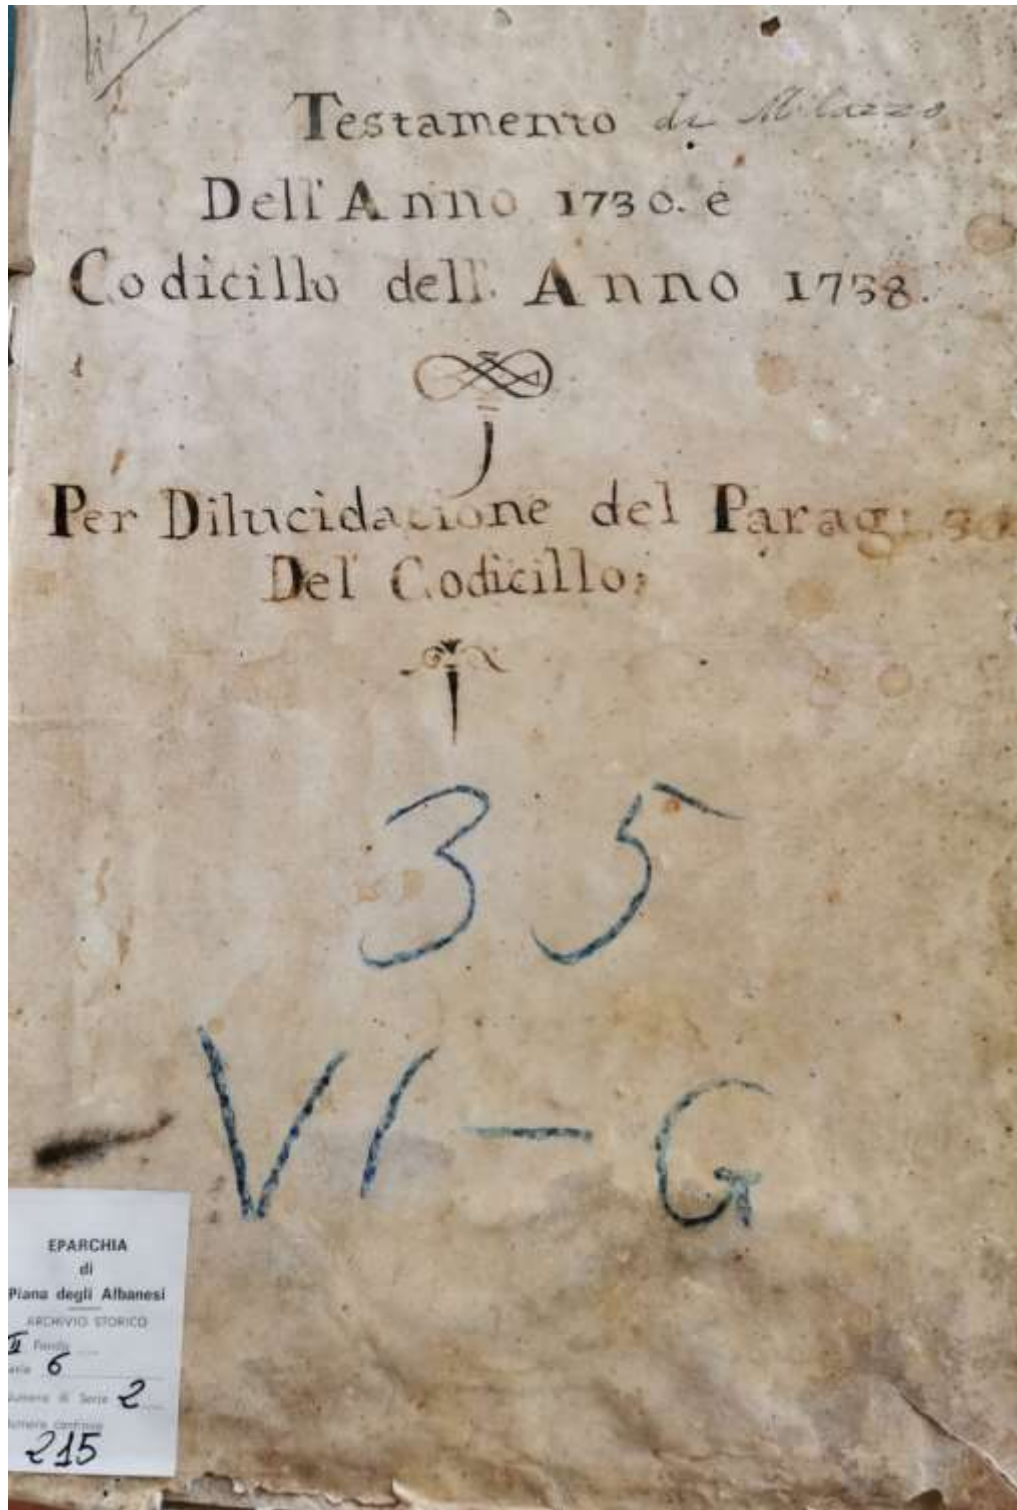 Testamento di Milazzo
Dell' Anno 1730. e
Codicillo dell' Anno 1738.
Per Dilucidacione del Parag:
Del Codicillo;
35
VI-G
EPARCHIA
di
Piana degli Albanesi
ARCHIVIO STORICO
II Fondo
6
Numero di Serie 2
215